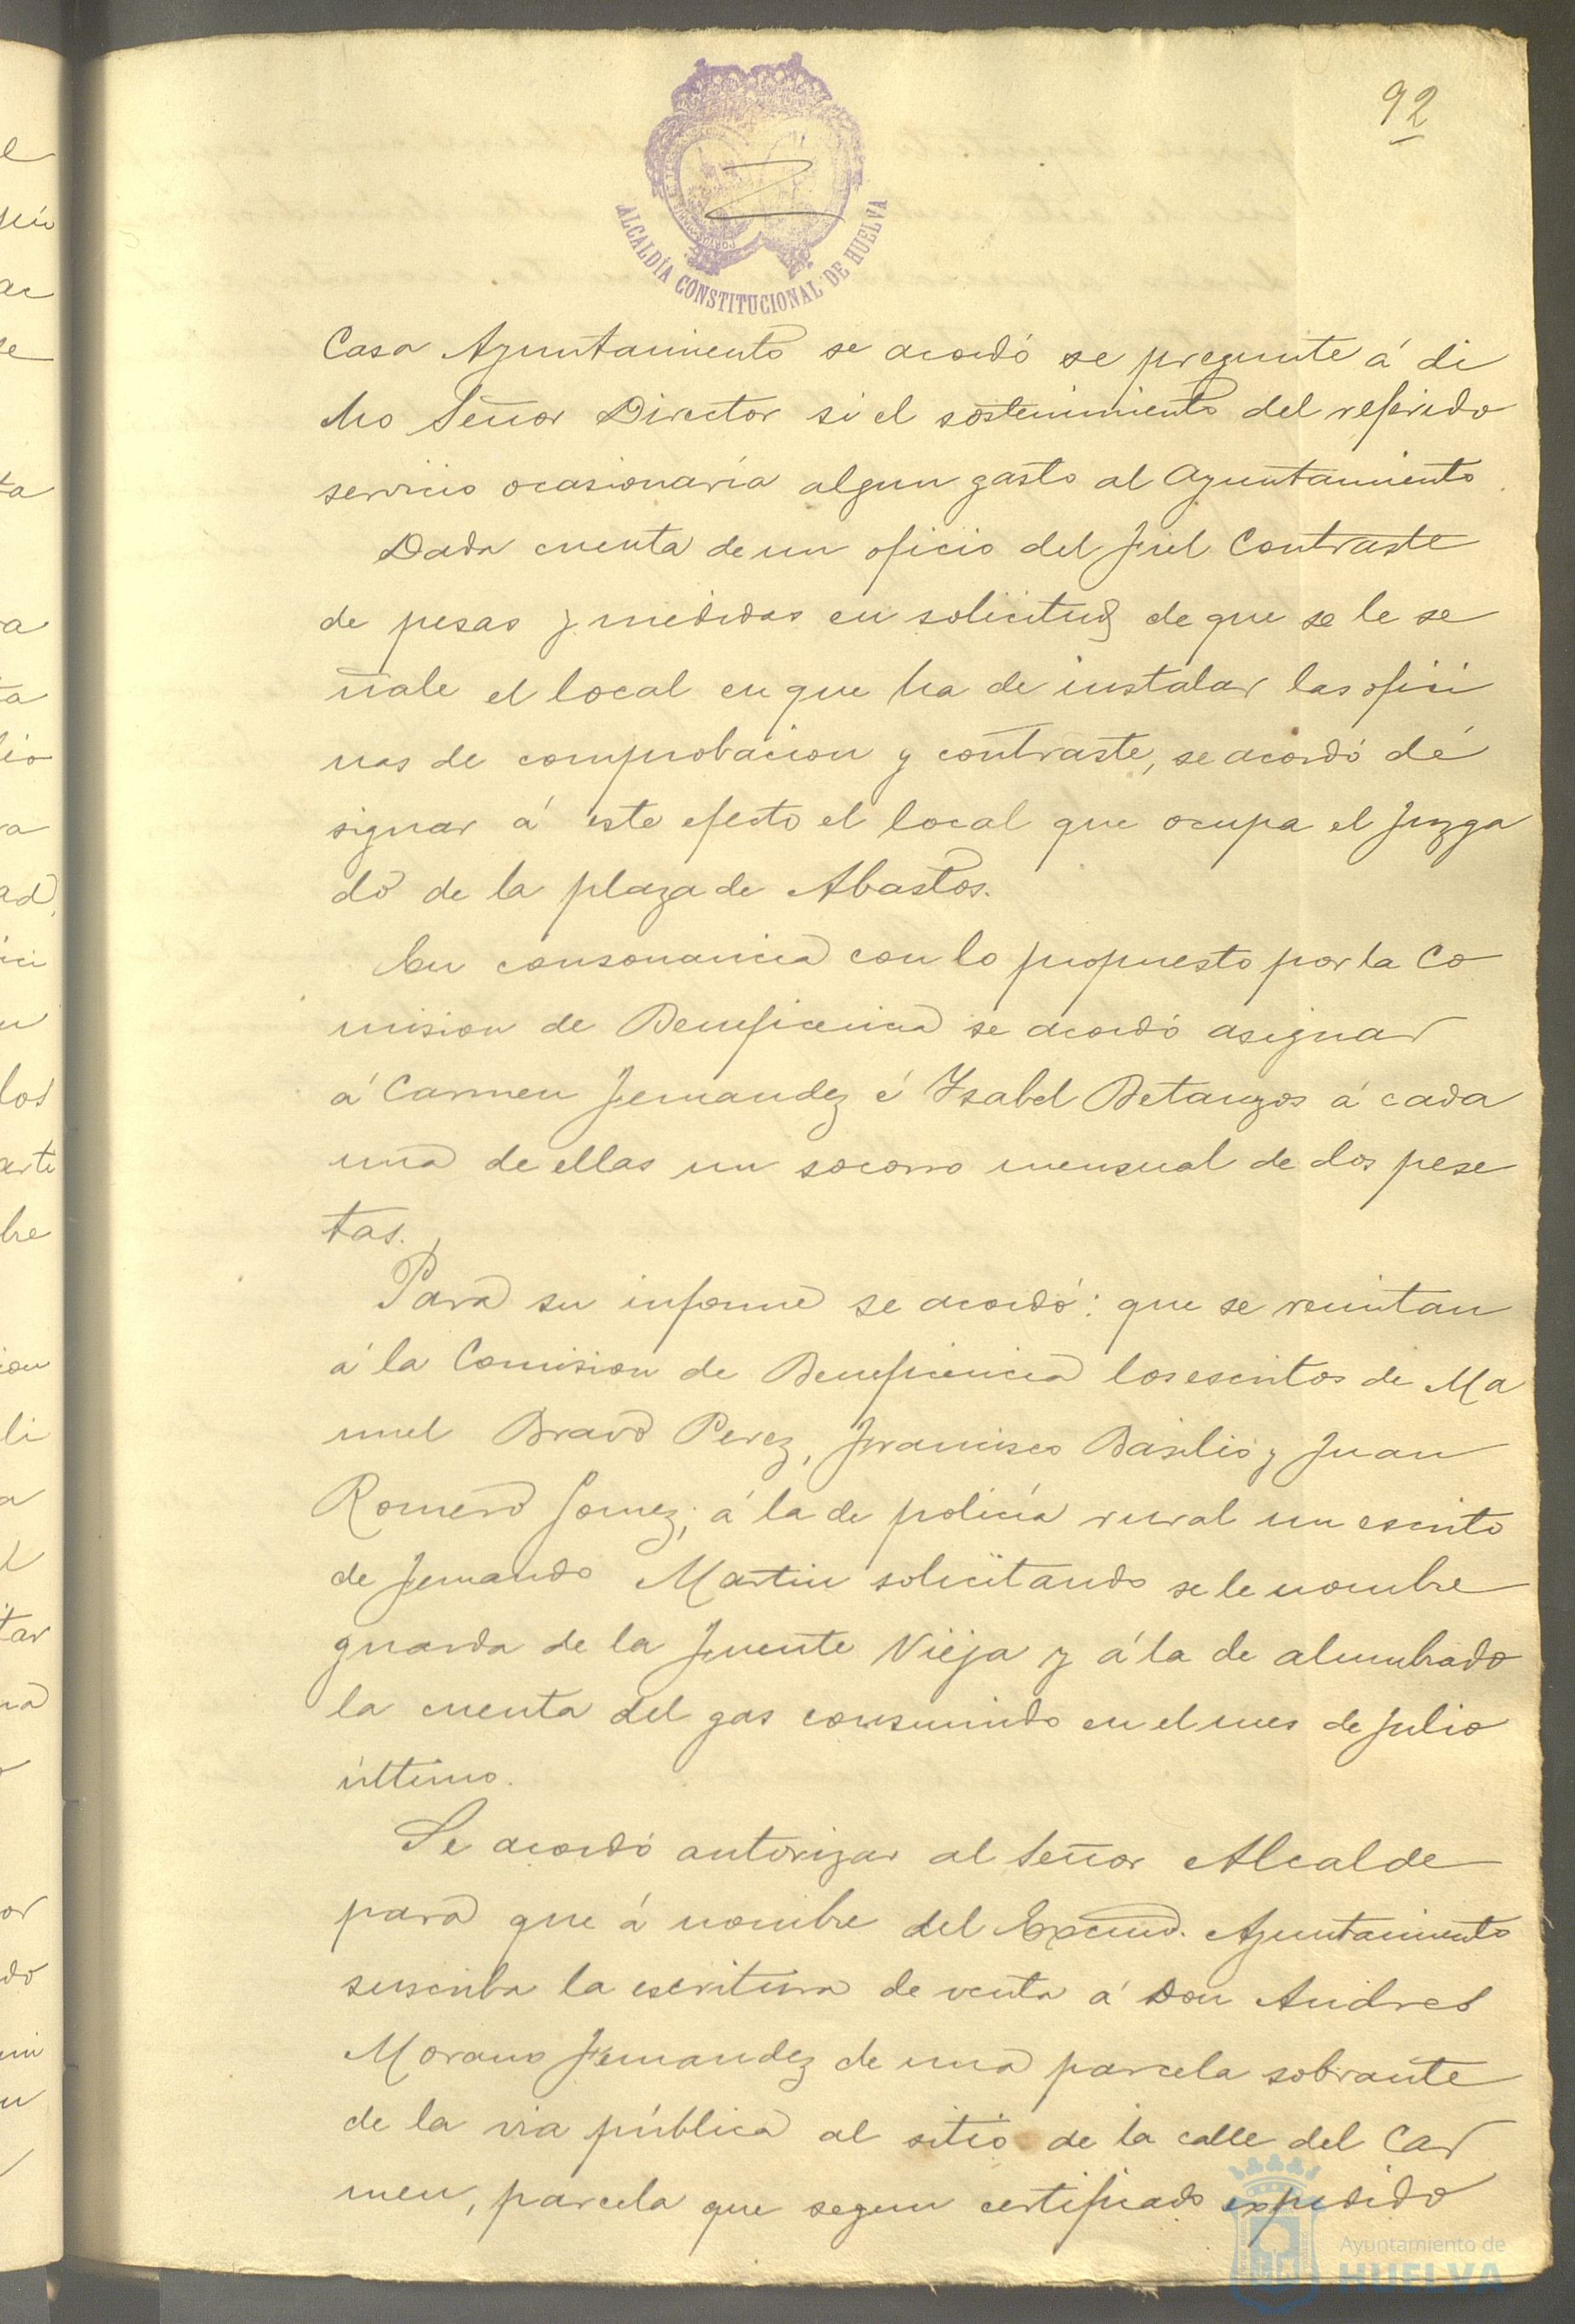 92
ALCALDÍA CONSTITUCIONAL DE HUELVA
Casa Ayuntamiento se acordó se pregunte á di
cho Señor Director si el sostenimiento del referido
servicio ocasionaría algun gasto al Ayuntamiento
Dada cuenta de un oficio del Fiel Contraste
de pesas y medidas en solicitud de que se le se
ñale el local en que ha de instalar las ofici
nas de comprobacion y contraste, se acordó de
signar á este efecto el local que ocupa el Juzga
do de la plaza de Abastos.
En consonancia con lo propuesto por la Co
mision de Beneficencia se acordó asignar
á Carmen Fernandez é Ysabel Betanzos á cada
una de ellas un socorro mensual de dos pese
tas.
Para su informe se acordó: que se remitan
á la Comision de Beneficencia los escritos de Ma
nuel Bravo Perez, Francisco Basilio y Juan
Romero Gomez; á la de policía rural un escrito
de Fernando Martin solicitando se le nombre
guarda de la Fuente Vieja y á la de alumbrado
la cuenta del gas consumido en el mes de Julio
último.
Se acordó autorizar al Señor Alcalde
para que á nombre del Excmo. Ayuntamiento
suscriba la escritura de venta á Don Andres
Morano Fernandez de una parcela sobrante
de la via pública al sitio de la calle del Car
men, parcela que segun certificado expedido
Ayuntamiento de
HUELVA